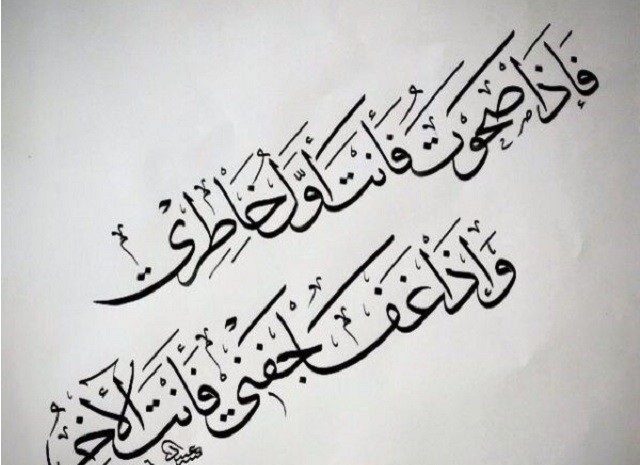 فَإِذَا صَحَوْتَ فَأَنْتَ أَوَّلُ خَاطِرِي
وَإِذَا غَفَا جَفْنِي فَأَنْتَ